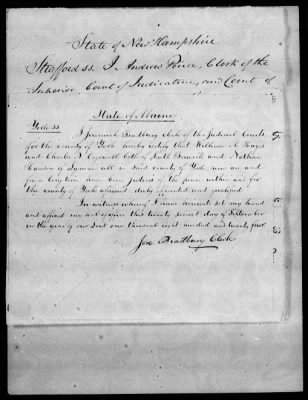 State of New Hampshire
Strafford ss. I, Andrew Peirce, Clerk of the
Superior Court of Judicature, and Court of
State of Maine
York ss. I Jeremiah Bradbury clerk of the Judicial Courts
for the county of York hereby certify that William A. Hayes
and Charles N. Cogswell both of South Berwick and Nathan
of Lyman all in said county of York now are and
for a long time have been justices of the peace within and for
the county of York aforesaid duly appointed and qualified
In witness whereof I have hereunto set my hand
and affixed my seal of office this twenty second day of September
in the year of our Lord one thousand eight hundred and twenty four
Jer. Bradbury Clerk